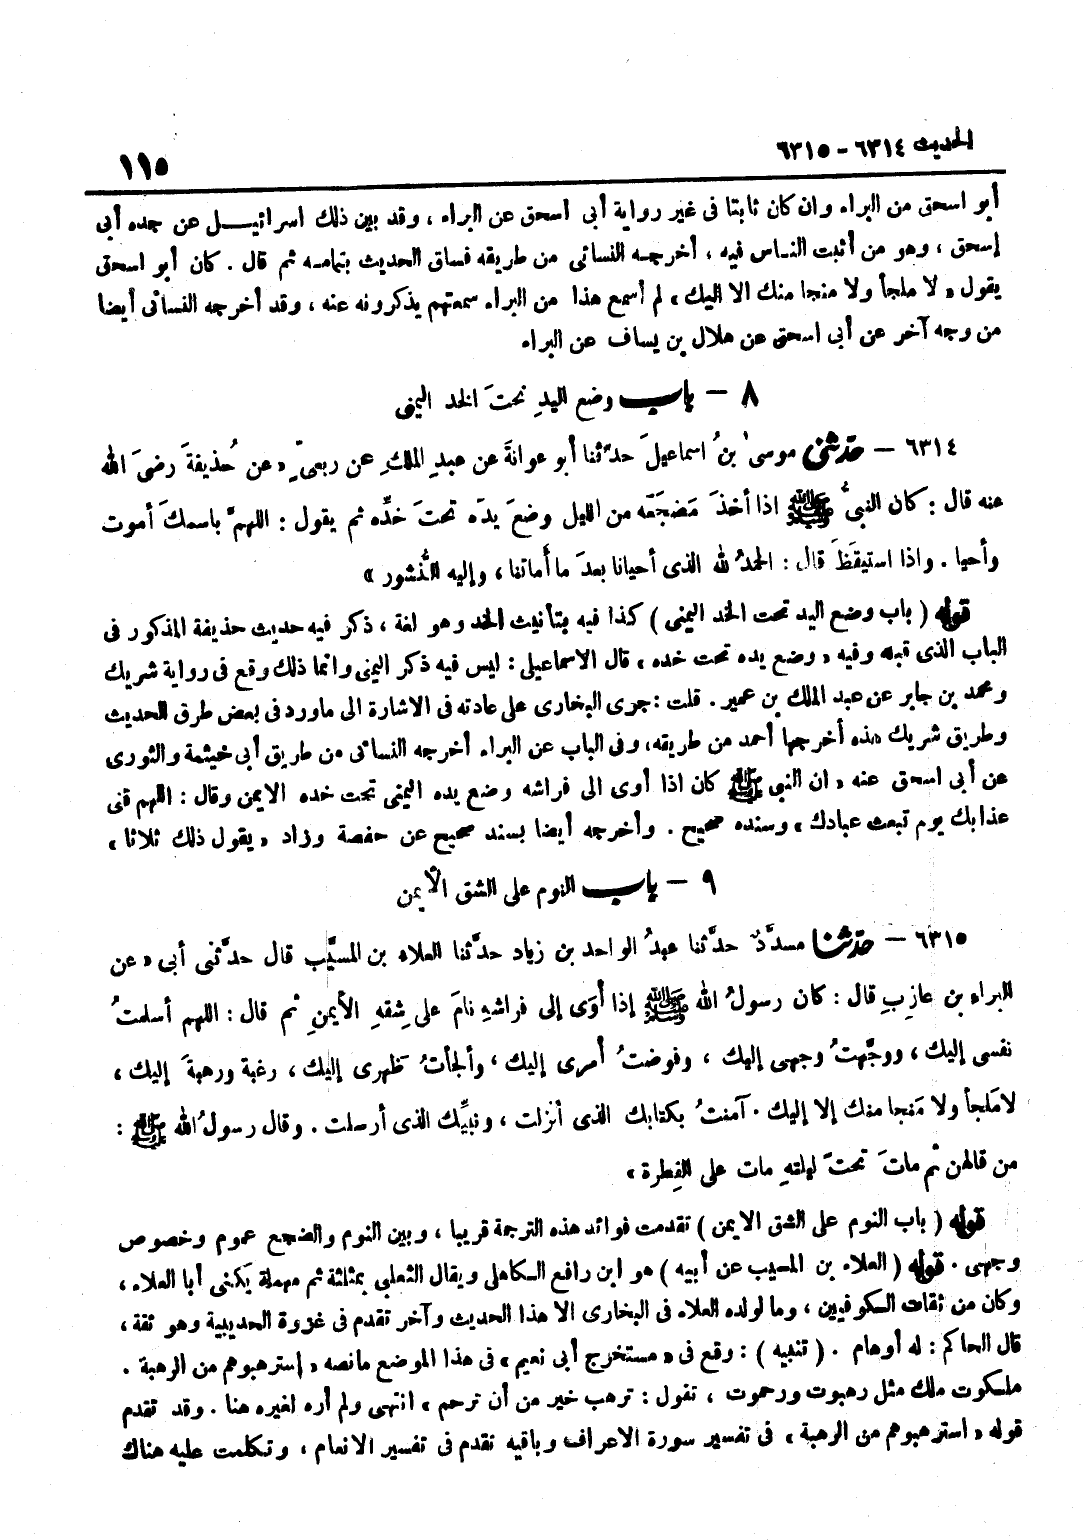 الحديث ٦٣١٤ - ٦٣١٥
١١٥
أبو اسحق من البراء وان كان ثابتا فى غير رواية أبى اسحق عن البراء ، وقد بين ذلك اسرائيـــل عن جده أبى
إسحق ، وهو من أثبت النـاس فيه ، أخرجـه النسائى من طريقه فساق الحديث بتمامـه ثم قال . كان أبو اسحق
يقول « لا ملجأ ولا منجا منك الا اليك » لم أسمع هذا من البراء سمعتهم يذكرونه عنه ، وقد أخرجه النسائى أيضا
من وجه آخر عن أبى اسحق عن هلال بن يساف عن البراء
٨ - باب وضع اليدِ تحتَ الخد اليمنى
٦٣١٤ - حدّثنى موسىٰ بنُ اسماعيلَ حدّثنا أبو عوانةَ عن عبدِ الملكِ عن ربعىّ « عن حُذيفةَ رضىَ الله
عنه قال : كان النبىُّ ﷺ اذا أخذَ مَضجَعَه من الليل وضعَ يدَه تحتَ خدِّه ثم يقول : اللهمَّ باسمكَ أموت
وأحيا . واذا استيقَظَ قال : الحمدُ لله الذى أحيانا بعدَ ما أماتنا ، وإليه النُّشور »
قوله ( باب وضع اليد تحت الخد اليمنى ) كذا فيه بتأنيث الخد وهو لغة ، ذكر فيه حديث حذيفة المذكور فى
الباب الذى قبله وفيه « وضع يده تحت خده » قال الاسماعيلى : ليس فيه ذكر اليمنى وانما ذلك وقع فى رواية شريك
ومحمد بن جابر عن عبد الملك بن عمير . قلت : جرى البخارى على عادته فى الاشارة الى ماورد فى بعض طرق الحديث
وطريق شريك هذه أخرجها أحمد من طريقه، وفى الباب عن البراء أخرجه النسائى من طريق أبى خيثمة والثورى
عن أبى اسحق عنه « ان النبى ﷺ كان اذا أوى الى فراشه وضع يده اليمنى تحت خده الايمن وقال : اللهم قنى
عذابك يوم تبعث عبادك » وسنده صحيح . وأخرجه أيضا بسند صحيح عن حفصة وزاد « يقول ذلك ثلاثا »
٩ - باب النوم على الشق الأيمن
٦٣١٥ - حدّثنا مسدَّدٌ حدَّثنا عبدُ الواحد بن زياد حدَّثنا العلاء بن المسيَّب قال حدَّثنى أبى « عن
البراء بن عازبِ قال : كان رسولُ الله ﷺ إذا أوَى إلى فراشهِ نامَ على شِقهِ الأيمنِ ثم قال : اللهم أسلمتُ
نفسى إليك ، ووجَّهتُ وجهى إليك ، وفوضتُ أمرى إليك ، وألجأتُ ظهرى إليك ، رغبة ورهبةَ إليك ،
لا مَلجأ ولا مَنجا منك إلا إليك . آمنتُ بكتابك الذى أنزلت ، ونبيِّك الذى أرسلت . وقال رسولُ الله ﷺ :
من قالهن ثم ماتَ تحتَ ليلتهِ مات على الفِطرة »
قوله ( باب النوم على الشق الايمن ) تقدمت فوائد هذه الترجمة قريبا ، وبين النوم والضجع عموم وخصوص
وجهى . قوله ( العلاء بن المسيب عن أبيه ) هو ابن رافع الكاهلى ويقال الثعلبى بمثلثة ثم مهملة يكنى أبا العلاء ،
وكان من ثقات الكوفيين ، وما لولده العلاء فى البخارى الا هذا الحديث وآخر تقدم فى غزوة الحديبية وهو ثقة ،
قال الحاكم : له أوهام . ( تنبيه ) : وقع فى « مستخرج أبى نعيم » فى هذا الموضع مانصه « إسترهبوهم من الرهبة .
ملكوت ملك مثل رهبوت ورحموت ، تقول : ترهب خير من أن ترحم » انتهى ولم أره لغيره هنا . وقد تقدم
قوله « استرهبوهم من الرهبة » فى تفسير سورة الاعراف وباقيه تقدم فى تفسير الانعام ، وتكلمت عليه هناك